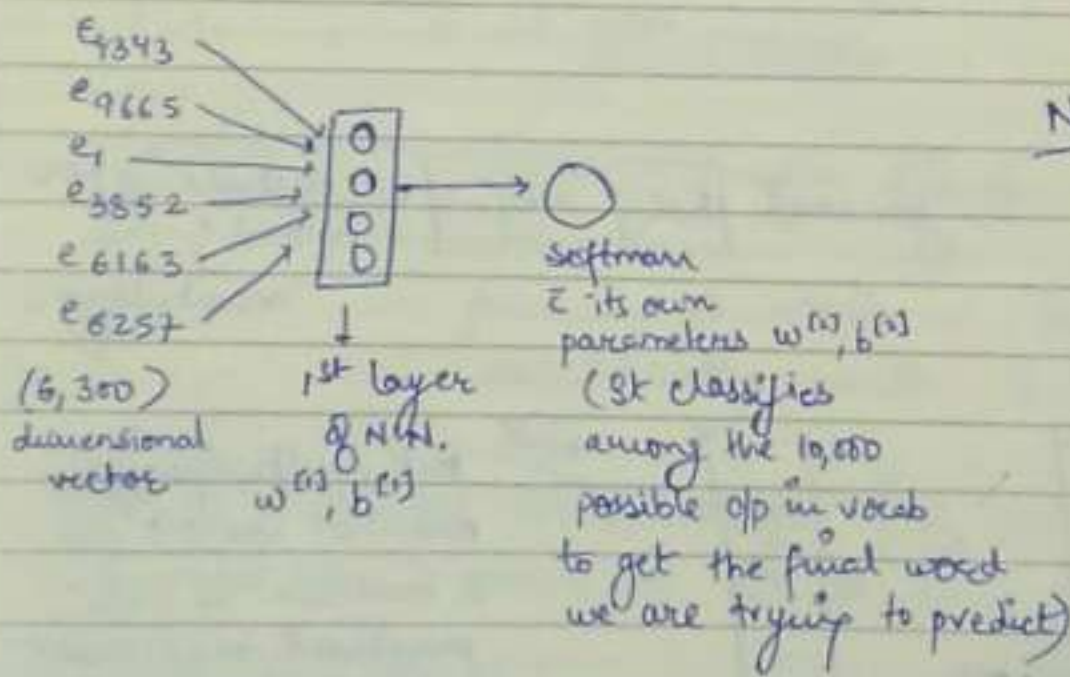 e4343
e9665
e1
e3852
e6163
e6257
(6, 300)
dimensional
vector
1st layer
of N.N.
w[1], b[1]
softmax
c̄ its own
parameters w[2], b[2]
(It classifies
among the 10,000
possible o/p in vocab
to get the final word
we are trying to predict)
N